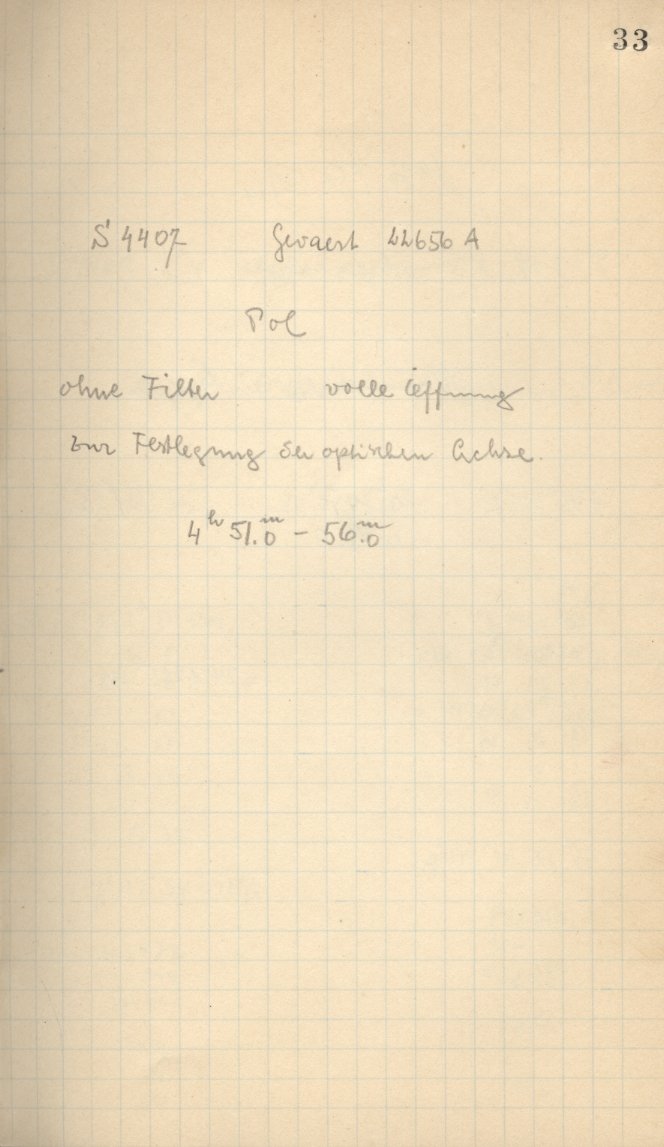 33
S 4407 Gevaert 22656 A
Pol
ohne Filter volle Oeffnung
zur Festlegung der optischen Achse.
4ʰ 51.ᵐ0 – 56.ᵐ0